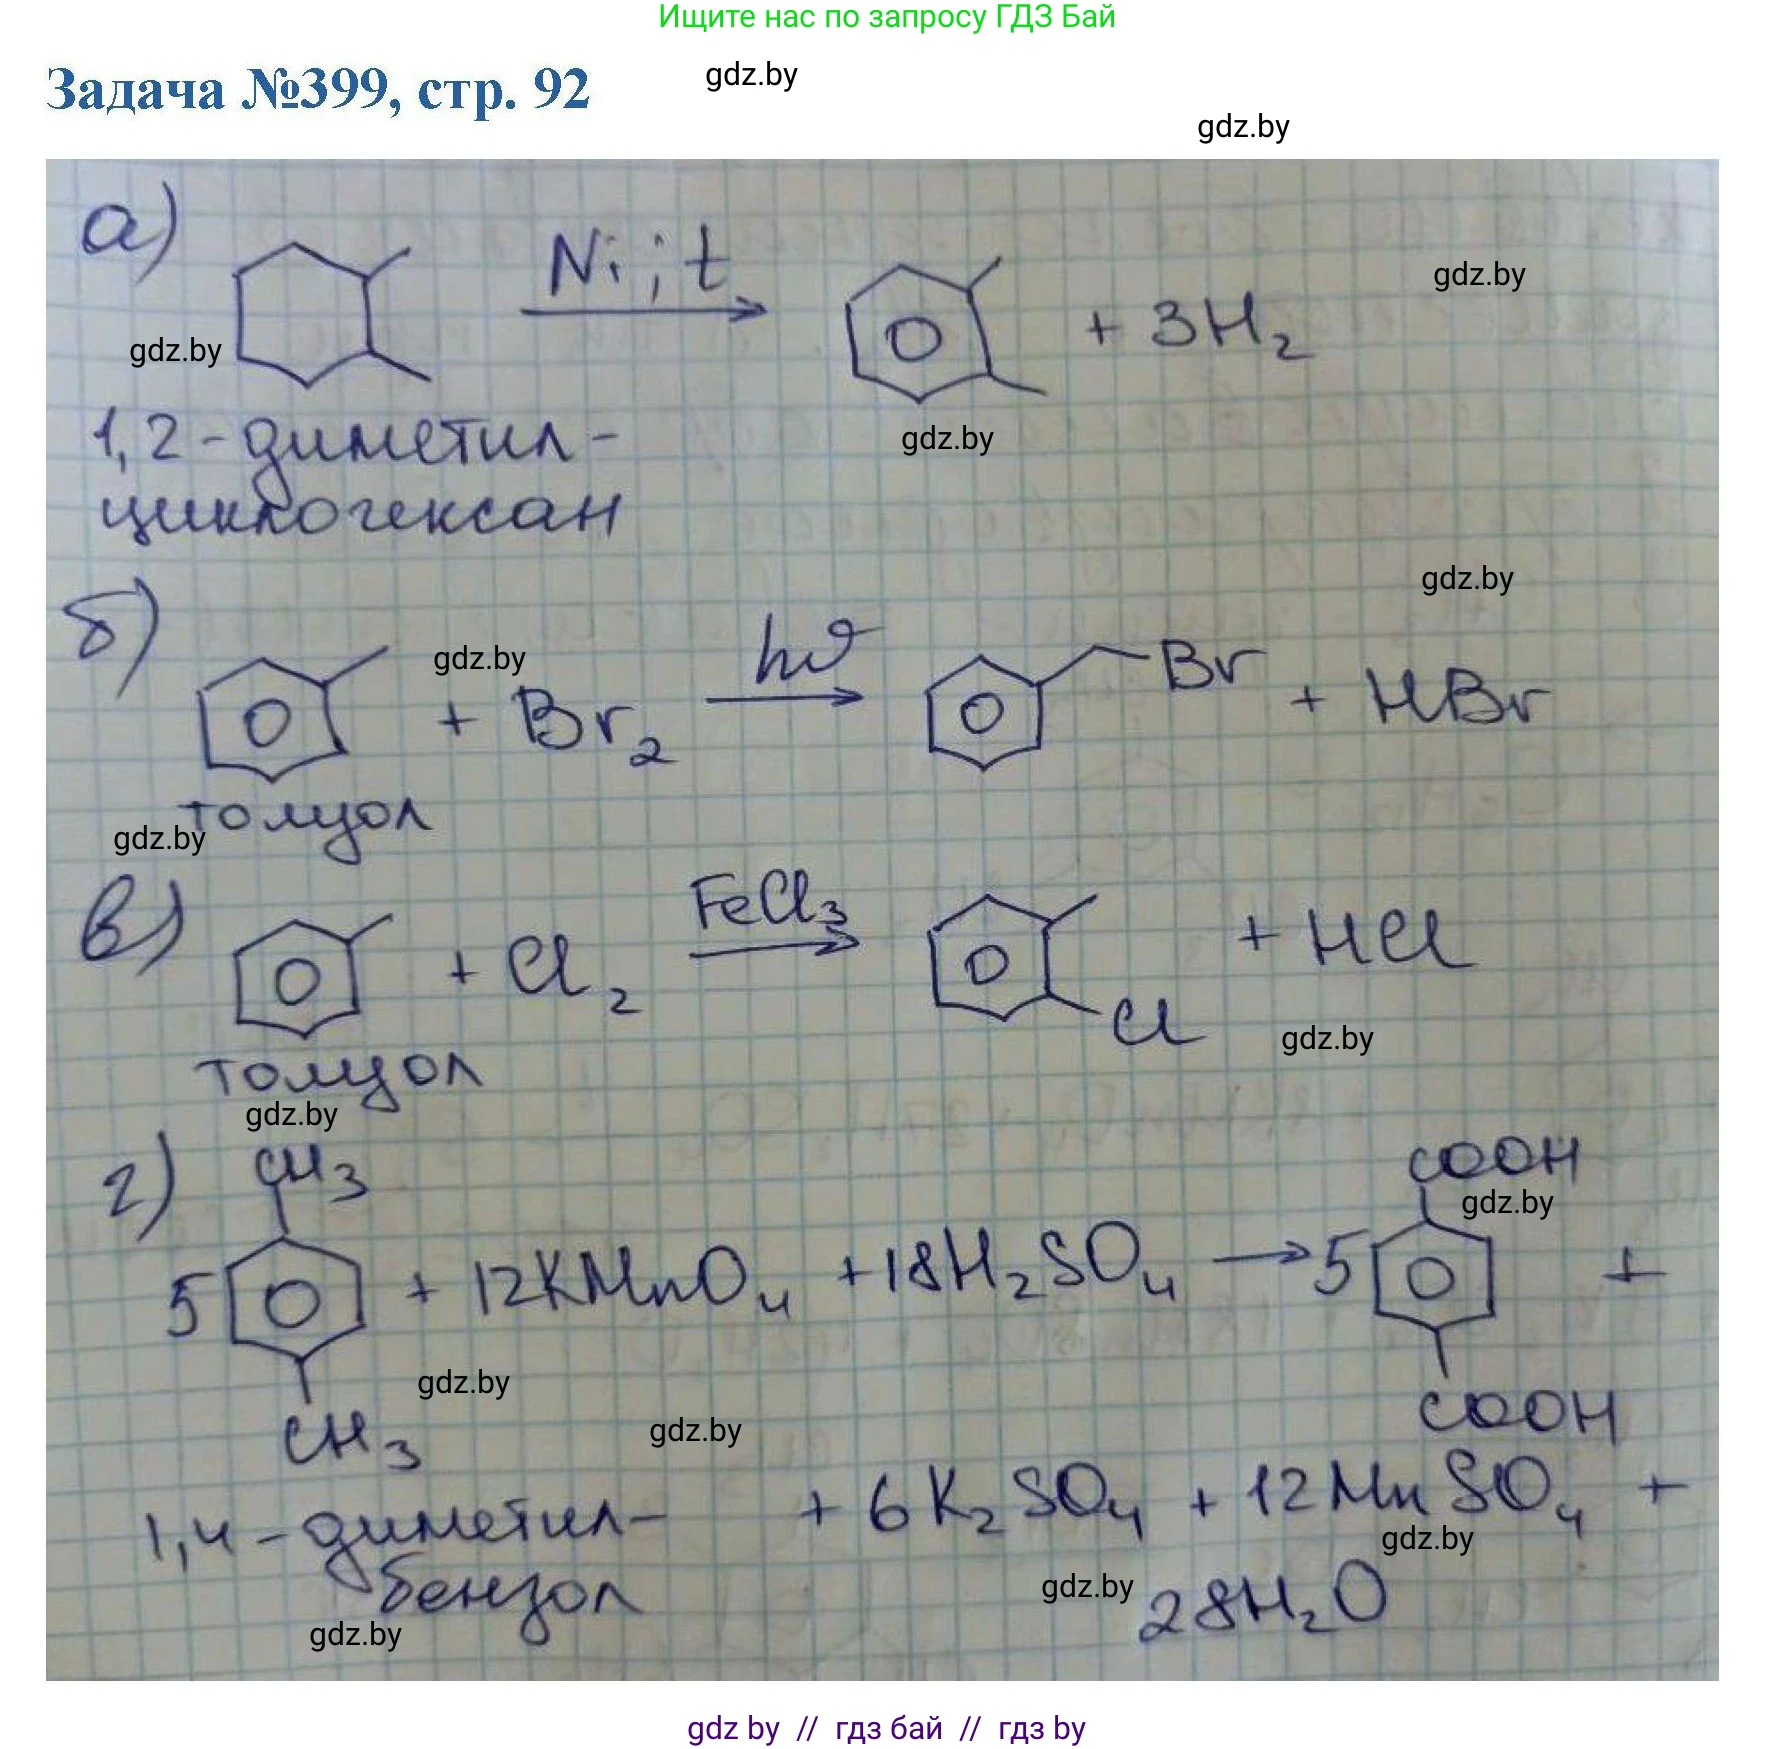 Ищите нас по запросу ГДЗ Бай
Задача №399, стр. 92
gdz.by
gdz.by
а)
Ni; t
+ 3H2
gdz.by
gdz.by
gdz.by
1,2-диметил-
циклогексан
б)
gdz.by
gdz.by
+ Br2
hν
Br
+ HBr
толуол
gdz.by
в)
+ Cl2
FeCl3
Cl
+ HCl
gdz.by
толуол
gdz.by
г)
CH3
COOH
gdz.by
5
+ 12KMnO4 + 18H2SO4
5
+
CH3
COOH
gdz.by
gdz.by
1,4-диметил-
бензол
+ 6K2SO4 + 12MnSO4 +
gdz.by
28H2O
gdz.by
gdz.by
gdz by // гдз бай // гдз by